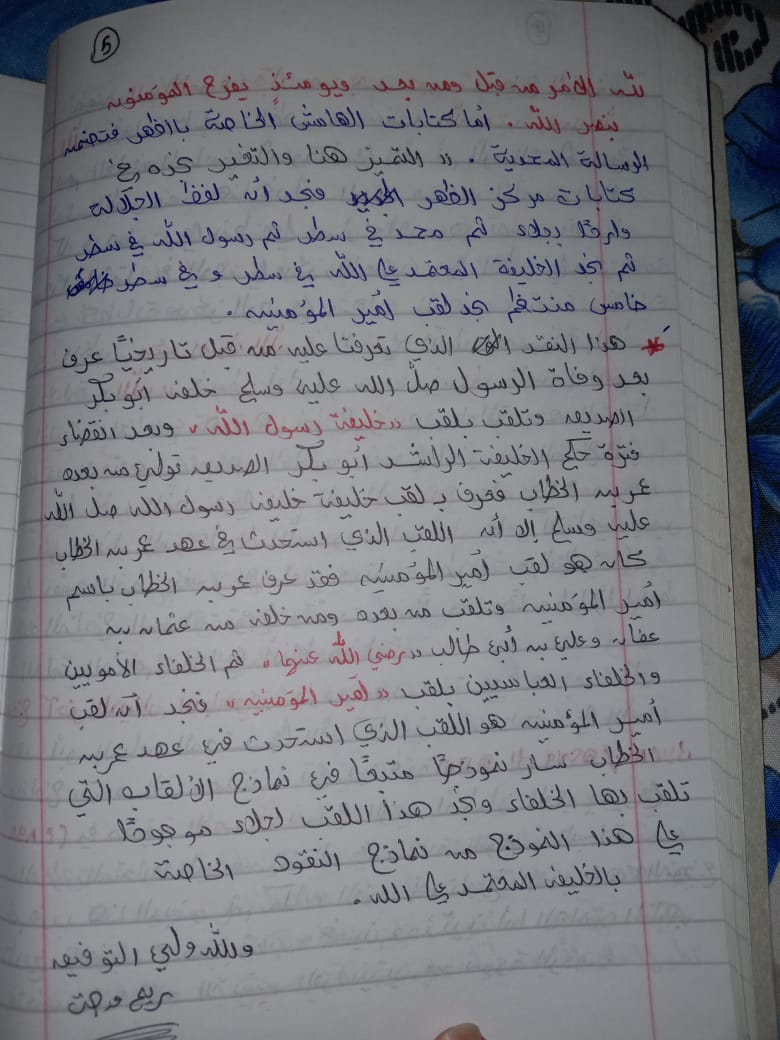 5
لله الأمر من قبل ومن بعد ويومئذٍ يفرح المؤمنون
بنصر الله. أما كتابات الهامش الخاصة بالظهر فتضمنت
الرسالة المحمدية. (( التميز هنا والتفير نجده في
كتابات مركز الظهر فنجد أن لفظ الجلالة
وارداً بجلاء ثم محمد في سطر ثم رسول الله في سطر
ثم نجد الخليفة المعتمد على الله في سطر و في سطر
خامس منتظم نجد لقب أمير المؤمنين.
* هذا النقد الذي تعرفنا عليه من قبل تاريخياً عرف
بعد وفاة الرسول صلَّ الله عليه وسلم خلفه أبو بكر
الصديق وتلقب بلقب ((خليفة رسول الله)) وبعد انقضاء
فترة حكم الخليفة الراشد أبو بكر الصديق تولى من بعده
عمر بن الخطاب فعرف بـ لقب خليفة خليفة رسول الله صل الله
عليه وسلم إلا أن اللقب الذي استحدث في عهد عمر بن الخطاب
كان هو لقب أمير المؤمنين فقد عرف عمر بن الخطاب باسم
أمير المؤمنين وتلقب من بعده ومن خلفه من عثمان بن
عفان وعلي بن أبي طالب ((رضي الله عنها)) ثم الخلفاء الأمويين
والخلفاء العباسيين بلقب ((أمير المؤمنين)) فنجد أن لقب
أمير المؤمنين هو اللقب الذي استحدث في عهد عمر بن
الخطاب سار نموذجاً متبعاً في نماذج الألقاب التي
تلقب بها الخلفاء ونجد هذا اللقب بجلاء موجوداً
على هذا النموذج من نماذج النقود الخاصة
بالخليفه المعتمد على الله.
والله ولي التوفيق